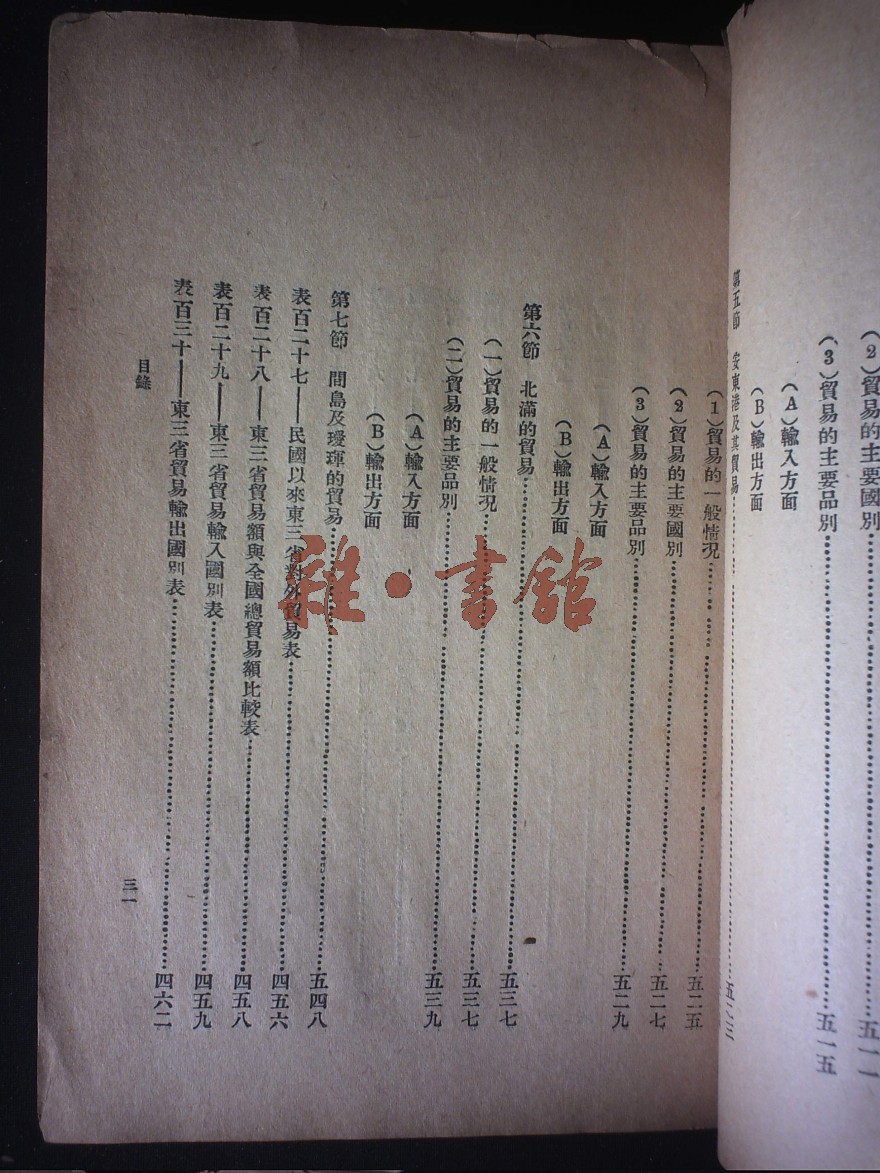 (2)貿易的主要國別……五一一
(3)貿易的主要品別……五一五
(A)輸入方面
(B)輸出方面
第五節 安東港及其貿易……五二三
(1)貿易的一般情况……五二五
(2)貿易的主要國別……五二七
(3)貿易的主要品別……五二九
(A)輸入方面
(B)輸出方面
第六節 北滿的貿易……五三七
(一)貿易的一般情况……五三七
(二)貿易的主要品別……五三九
(A)輸入方面
(B)輸出方面
第七節 間島及璦琿的貿易……五四八
表百二十七——民國以來東三省對外貿易表……四五六
表百二十八——東三省貿易額與全國總貿易額比較表……四五八
表百二十九——東三省貿易輸入國別表……四五九
表百三十——東三省貿易輸出國別表……四六二
目錄
三一
雅·書館